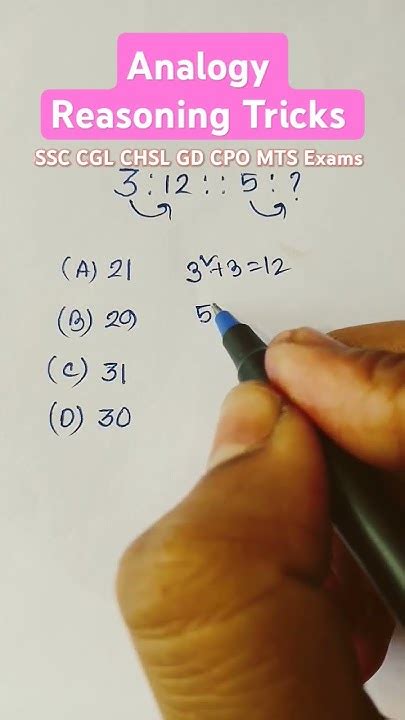 Analogy
Reasoning Tricks
SSC CGL CHSL GD CPO MTS Exams
3 : 12 : : 5 : ?
(A) 21
3²+3=12
(B) 29
5
(C) 31
(D) 30